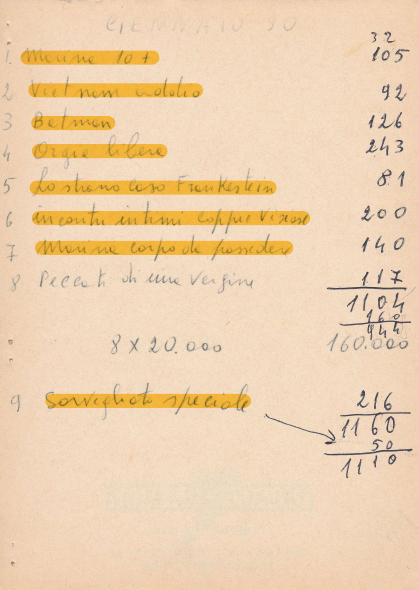 GENNAIO 90
32
1 Marina 10 + 105
2 Vietnam addio 92
3 Batman 126
4 Orgia libera 243
5 Lo strano caso Frankestein 81
6 incontri intimi coppie viziose 200
7 Marina corpo da possedere 140
8 Peccati di una vergine 117
1104
160
944
8 X 20.000 160.000
9 Sorvegliato speciale 216
1160
50
1110